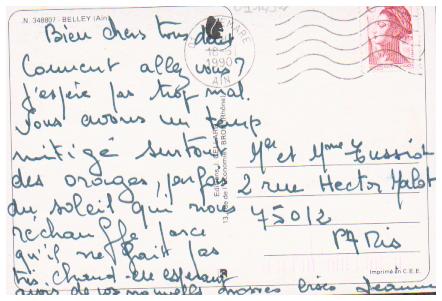 N. 348807 - BELLEY (Ain)
Bien chers tous deux
Comment allez vous ?
J'espère pas trop mal.
Nous avons un temps
mitigé surtout
des orages, parfois
du soleil qui nous
réchauffe parce
qu'il ne fait pas
très chaud. En espérant
avoir de vos nouvelles grosses bises Jeanne
MARE
1990
AIN
Mr et Mme Tussiot
2 rue Hector Malot
75012
PARIS
Imprimé en C.E.E.